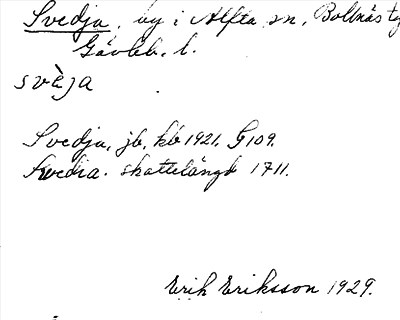 Svedja, by i Alfta sn, Bollnäs tg
Gävleb. l.
svèja
Svedja, jb, kb 1921. G109.
Swedia. skattelängd 1711.
Erik Eriksson 1929.